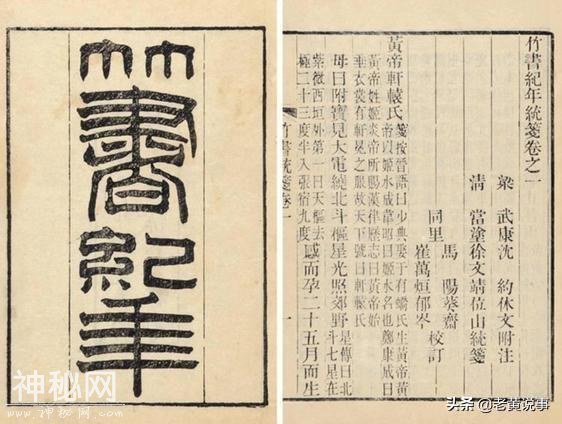 竹書紀年
竹書紀年統箋卷之一
梁 武康沈 約休文附注
清 當塗徐文靖位山統箋
馬 陽葵齋
同里 校訂
崔萬烜郁岑
黃帝軒轅氏
箋按晉語曰少典娶于有蟜氏生黃帝黃
帝以姬水成韋昭曰姬水名也鄭康成曰
黃帝姓姬炎帝所賜漢律歷志曰黃帝始
垂衣裳有軒冕之服故天下號曰軒轅氏
母曰附寶見大電繞北斗樞星光照郊野
星傳曰北
斗七星在
紫微西垣外第一曰天樞去
極二十三度半入張宿九度
感而孕二十五月而生
竹書統箋卷一
一
神秘网
头条 @老黄说事